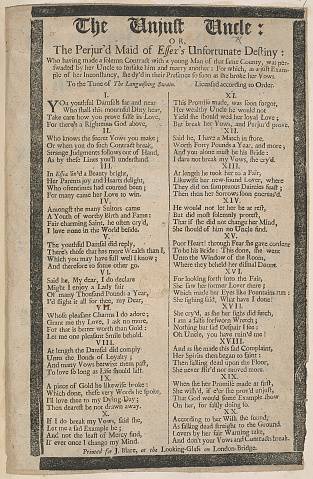 The Unjust Uncle:
OR,
The Perjur'd Maid of Essex's Unfortunate Destiny:
Who having made a solemn Contract with a young Man of that same County, was per-
swaded by her Uncle to forsake him and marry another: For which, as a just Exam-
ple of her Inconstancy, she dy'd in their Presence so soon as she broke her Vows
To the Tune of The Languishing Swain. Licensed according to Order.
I.
YOu youthful Damsels far and near
Who shall this mournful Ditty hear,
Take care how you prove false in Love,
For there's a Righteous God above.
II.
Who knows the secret Vows you make;
Or when you do such Contract break,
Strange Judgments follows out of Hand,
As by these Lines you'll understand.
III.
In Essex liv'd a Beauty bright,
Her Parents joy and Hearts delight,
Who oftentimes had courted been;
For many came her Love to win.
IV.
Amongst the many Suitors came
A Youth of worthy Birth and Fame:
Fair charming Saint, he often cry'd,
I love none in the World beside.
V.
The youthful Damsel did reply,
There's those that has more Wealth than I,
Which you may have full well I know;
And therefore to some other go.
VI.
Said he, My dear, I do declare
Might I enjoy a Lady fair
Of many Thousand Pounds a Year,
I'd slight it all for thee, my Dear,
VII.
Whose pleasant Charms I do adore;
Grant me thy Love, I ask no more,
For that is better worth than Gold:
Let me one pleasant Smile behold.
VIII.
At length the Damsel did comply
Unto the Bonds of Loyalty;
And many Vows betwixt them past,
To love so long as Life should last.
IX.
A piece of Gold he likewise broke:
Which done, these very Words he spoke,
I'll love thee to my Dying-Day;
Then dearest be not drawn away.
X.
If I do break my Vows, said she,
Let me a sad Example be;
And not the least of Mercy find,
If ever once I change my Mind.
XI.
This Promise made, was soon forgot,
Her wealthy Uncle he would not
Yield she should wed her loyal Love;
But break her Vows, and Perjur'd prove.
XII.
Said he, I have a Match in store
Worth Forty Pounds a Year, and more;
And you alone must be his Bride:
I dare not break my Vows, she cry'd.
XIII.
At length he took her to a Fair,
Likewise her new-found Lover, where
They did on sumptuous Dainties feast;
Then then her Sorrows soon encreas'd.
XIV.
He would not let her be at rest,
But did most solemnly protest,
That if she did not change her Mind,
She should of him no Uncle find.
XV.
Poor Heart! through Fear she gave consent
To be his Bride: This done, she went
Unto the Window of the Room,
Where they beheld her dismal Doom.
XVI.
For looking forth into the Fair,
She saw her former Lover there;
Which made her Eyes like Fountains run:
She sighing said, What have I done!
XVII.
She cry'd, as she her sight did fetch,
I am a false forsworn Wretch;
Nothing but sad Despair I see;
Oh Uncle, you have ruin'd me!
XVIII.
And as she made this sad Complaint,
Her Spirits then began to faint:
Then falling dead upon the Floor,
She never stir'd nor moved more.
XIX.
When she her Promise made at first,
She wish'd, if e'er she prov'd unjust,
That God would some Example show
On her, for falsly doing so.
XX.
According to her Wish she found,
As falling dead straight to the Ground.
Lovers by her fair Warning take,
And don't your Vows and Contracts break.
Printed for J. Blare, at the Looking-Glass on London-Bridge.